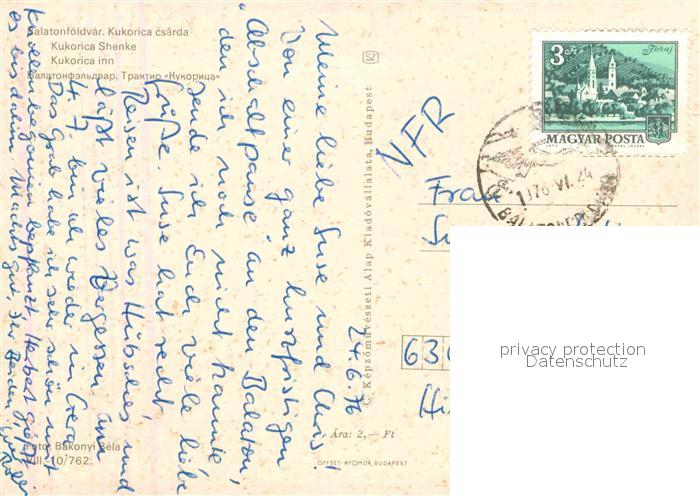 Balatonföldvár. Kukorica csárda
Kukorica Shenke
Kukorica inn
Балатонфэльдвар. Трактир «Кукорица»
SZ
3 Ft
Tokaj
MAGYAR POSTA
76 VI. 24
24.6.76
Meine liebe Suse und Chris!
Von einer ganz kurzfristigen
„Abschaltpause" an den Balaton,
den ich noch nicht kannte
sende ich Euch viele liebe
Grüße. Suse hat recht,
Reisen ist was Hübsches und
läßt vieles Vergessen. Am
4.7. bin ich wieder in Gera
Das Grab habe ich sehr schön mit
Knollenbegonien bepflanzt Herbert gießt
es bis dahin. Machts gut, Ihr Beiden
VFR
Frau
Su
636
(Hi
© Képzőművészeti Alap Kiadóvállalata, Budapest
Ára: 2,— Ft
OFFSET-NYOMDA, BUDAPEST
Foto: Bakonyi Béla
VIII-10/762.
privacy protection
Datenschutz